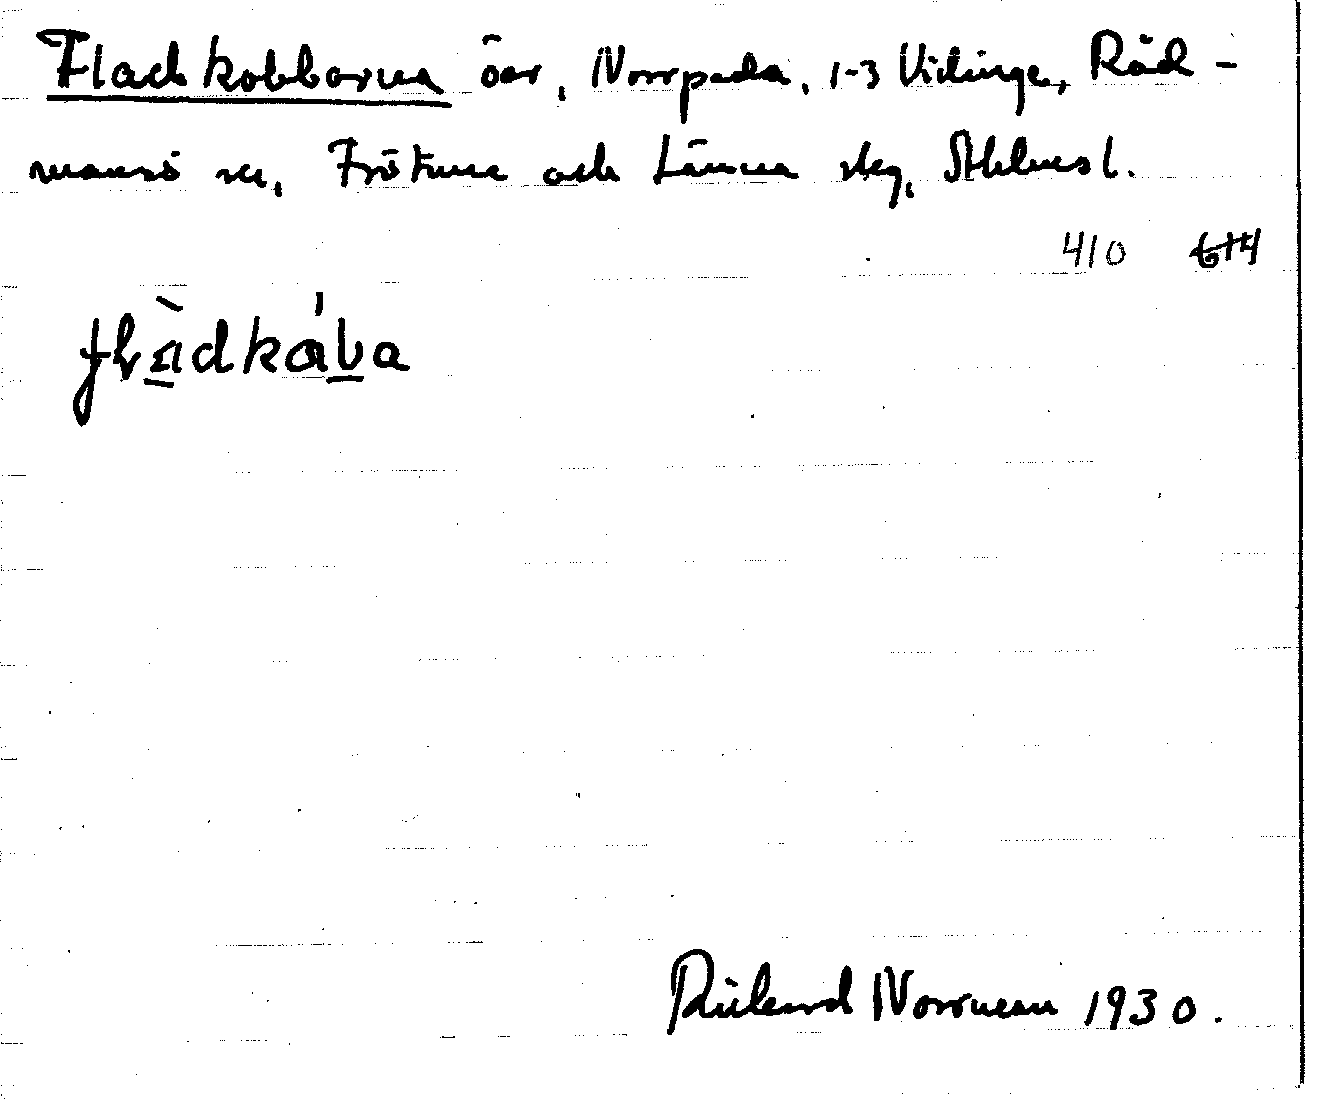 Fladkobbarna öar, Norrpada, 1-3 Vidinge, Råd-
mansö sn, Frötuna och Länna skg, Sthlms l.
410 614
flàdkába
Rickard Norrman 1930.